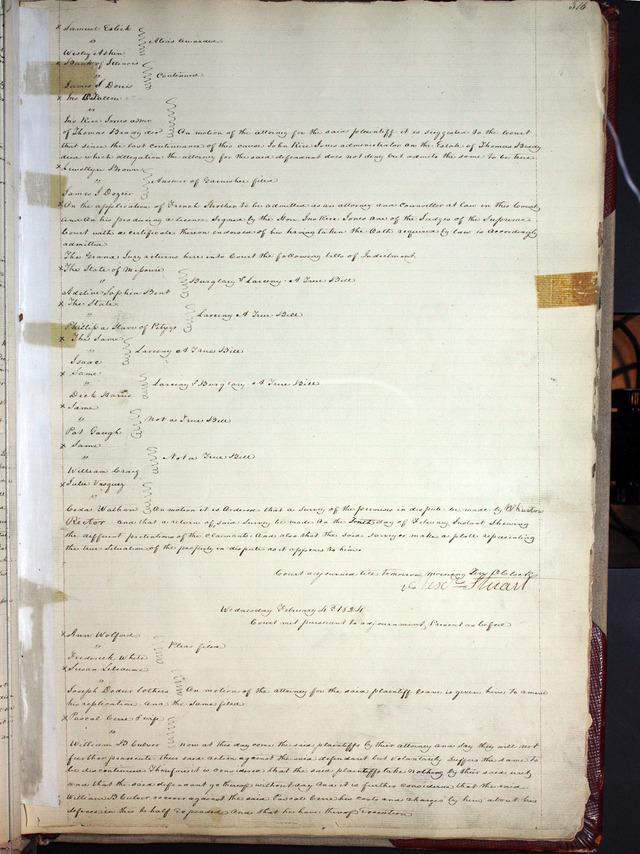 316
x Samuel Eslick
"
Alias awarded
Wesley Askin
x Bank of Illinois
" Continued
James J Dozier
x
"
Jno Rice Jones admr
of Thomas Brady decd On motion of the attorney for the said plaintiff it is suggested to the Court
that since the last continuance of this cause John Rice Jones administrator on the Estate of Thomas Brady
died which allegation the attorney for the said defendant does not deny but admits the same to be true
x Lewellyn Brown
" Answer of Garnishee filed
James J Dozier
x On the application of French Strother to be admitted as an attorney and Councellor at Law in this Court
and on his producing a licence Signed by the Hon Jno Rice Jones one of the Judges of the Supreme
Court with a certificate thereon endorsed of his having taken the Oath required by law is Accordingly
admitted
The Grand Jury returns here into Court the following bills of Indictment
x The State of Missouri
" Burglary & Larceny - A True Bill
Adeline Sophia Bent
x The State
" Larceny A True Bill
Phillip a Slave of
x The Same
" Larceny A True Bill
Isaac
x Same
" Larceny & Burglary A True Bill
Dick Harris
x Same
" Not a True Bill
Pat Gough
x Same
" Not a True Bill
William Craig
x Julie Vasquez
"
On motion it is Ordered that a Survey of the premises in dispute be made by Wharton
Rector and that a return of said Survey be made on the tenth day of February Instant Shewing
the different pretentions of the Claimants And also that the said Surveyor make a platt representing
the true Situation of the property in dispute as it appears to him
Court adjourned till tomorrow morning
Alexr Stuart
Wednesday February 4th 1824
Court met pursuant to adjournment, Present as before
x Ann Wolford
" Pleas filed
Frederick White
x Susan
"
Joseph Dodier & others On motion of the attorney for the said plaintiff leave is given him to amend
his replication And the Same filed
x Pascal Cerre & wife
"
William B Culver now at this day come the said plaintiffs by their attorney and say they will not
further prosecute their said action against the said defendant but voluntarily suffers the same to
be discontinued Therefore it is considered that the said plaintiffs take nothing by their said writ
and that the said defendant go thereof without day And it is further considered that the said
William B Culver recover against the said Pascal Cerre his costs and charges by him about his
defence in this behalf expended And that he have thereof Execution